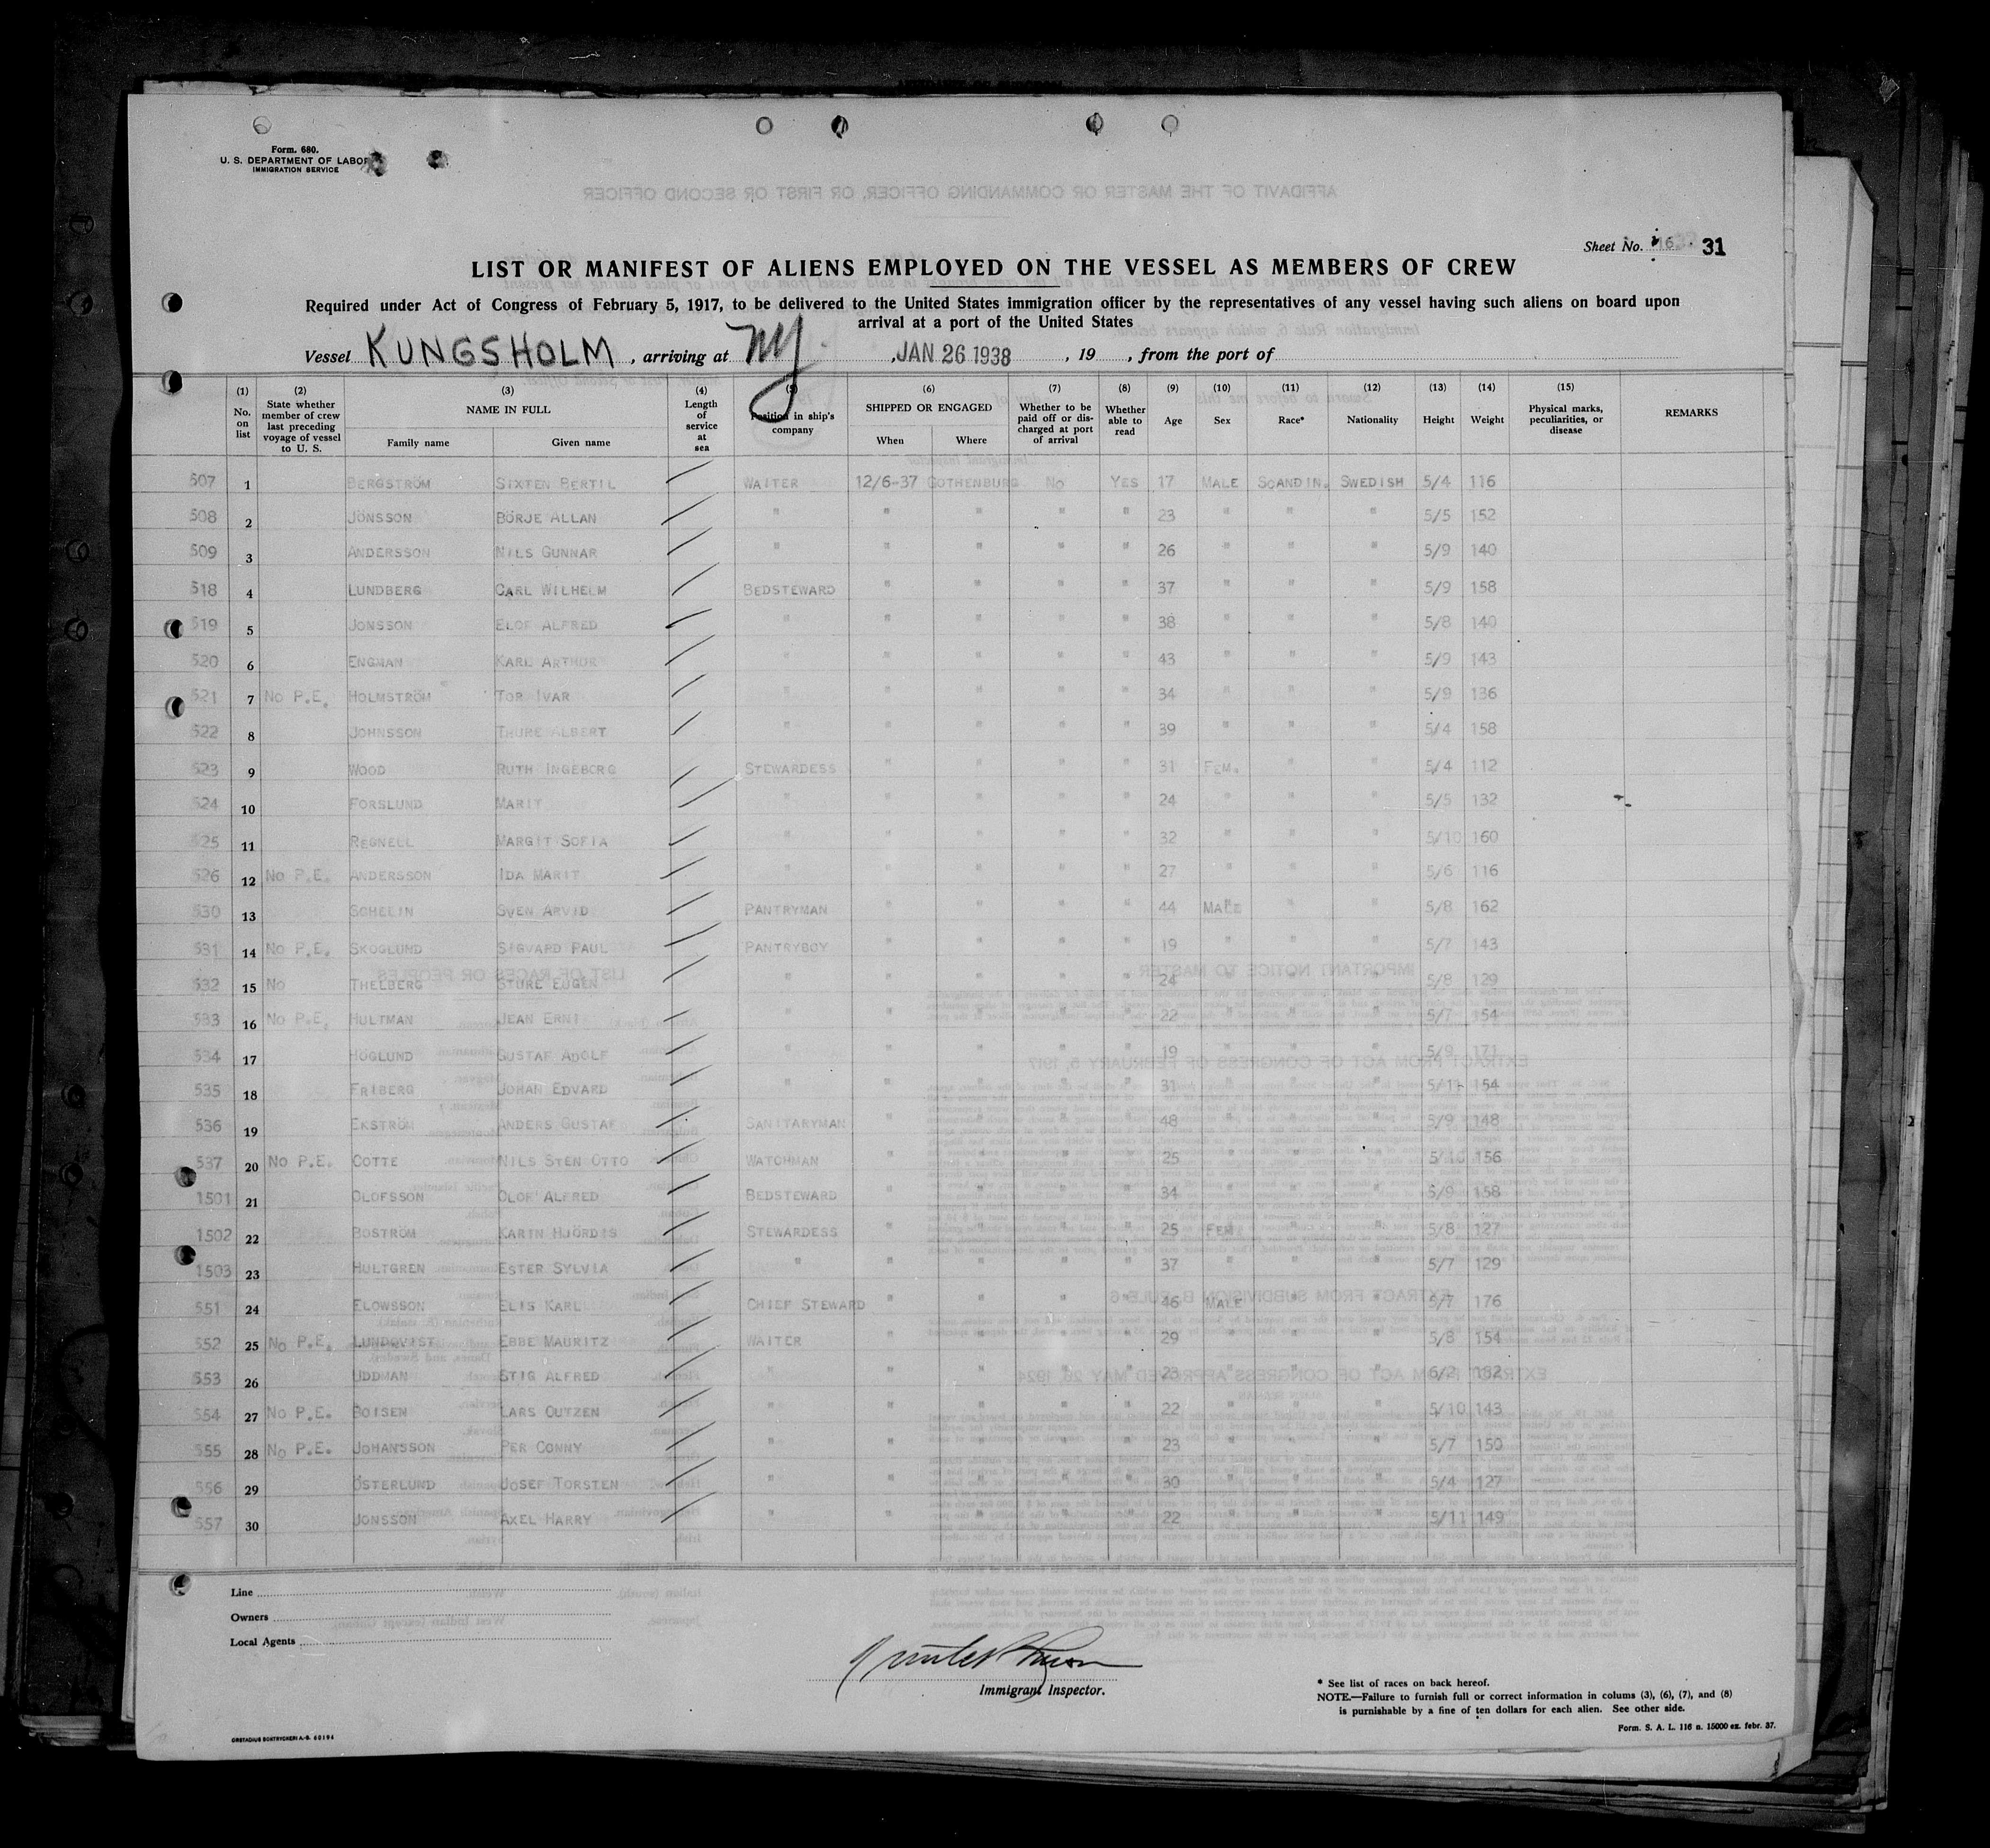 Form. 680.
U. S. DEPARTMENT OF LABOR
IMMIGRATION SERVICE
AFFIDAVIT OF THE MASTER OR COMMANDING OFFICER, OR FIRST OR SECOND OFFICER
Sheet No. 16 31
LIST OR MANIFEST OF ALIENS EMPLOYED ON THE VESSEL AS MEMBERS OF CREW
Required under Act of Congress of February 5, 1917, to be delivered to the United States immigration officer by the representatives of any vessel having such aliens on board upon
arrival at a port of the United States
Vessel KUNGSHOLM, arriving at NY., JAN 26 1938, 19 , from the port of
(1) No. on list (2) State whether member of crew last preceding voyage of vessel to U. S. (3) NAME IN FULL Family name Given name (4) Length of service at sea (5) Position in ship's company (6) SHIPPED OR ENGAGED When Where (7) Whether to be paid off or discharged at port of arrival (8) Whether able to read (9) Age (10) Sex (11) Race* (12) Nationality (13) Height (14) Weight (15) Physical marks, peculiarities, or disease REMARKS
507 1 BERGSTRÖM SIXTEN BERTIL WAITER 12/6-37 GOTHENBURG NO YES 17 MALE SCANDIN. SWEDISH 5/4 116
508 2 JÖNSSON BÖRJE ALLAN " " " " " 23 " " " 5/5 152
509 3 ANDERSSON NILS GUNNAR " " " " " 26 " " " 5/9 140
518 4 LUNDBERG CARL WILHELM BEDSTEWARD " " " " 37 " " " 5/9 158
519 5 JONSSON ELOF ALFRED " " " " " 38 " " " 5/8 140
520 6 ENGMAN KARL ARTHUR " " " " " 43 " " " 5/9 143
521 7 NO P.E. HOLMSTRÖM TOR IVAR " " " " " 34 " " " 5/9 136
522 8 JOHNSSON THURE ALBERT " " " " " 39 " " " 5/4 158
523 9 WOOD RUTH INGEBORG STEWARDESS " " " " 31 FEM. " " 5/4 112
524 10 FORSLUND MARIT " " " " " 24 " " " 5/5 132
525 11 REGNELL MARGIT SOFIA " " " " " 32 " " " 5/10 160
526 12 NO P.E. ANDERSSON IDA MARIT " " " " " 27 " " " 5/6 116
530 13 SCHELIN SVEN ARVID PANTRYMAN " " " " 44 MALE " " 5/8 162
531 14 NO P.E. SKOGLUND SIGVARD PAUL PANTRYBOY " " " " 19 " " " 5/7 143
532 15 NO THELBERG STURE EUGEN " " " " " 24 " " " 5/8 129
533 16 NO P.E. HULTMAN JEAN ERNI " " " " " 22 " " " 5/7 154
534 17 HÖGLUND GUSTAF ADOLF " " " " " 19 " " " 5/9 171
535 18 FRIBERG JOHAN EDVARD " " " " " 31 " " " 5/11 154
536 19 EKSTRÖM ANDERS GUSTAF SANITARYMAN " " " " 48 " " " 5/9 148
537 20 NO P.E. COTTE NILS STEN OTTO WATCHMAN " " " " 25 " " " 5/10 156
1501 21 OLOFSSON OLOF ALFRED BEDSTEWARD " " " " 34 " " " 5/9 158
1502 22 BOSTRÖM KARIN HJÖRDIS STEWARDESS " " " " 25 FEM. " " 5/8 127
1503 23 HULTGREN ESTER SYLVIA " " " " " 37 " " " 5/7 129
551 24 ELOWSSON ELIS KARL CHIEF STEWARD " " " " 46 MALE " " 5/7 176
552 25 NO P.E. LUNDQVIST EBBE MAURITZ WAITER " " " " 29 " " " 5/8 154
553 26 UDDMAN STIG ALFRED " " " " " 23 " " " 6/2 182
554 27 NO P.E. BOISEN LARS OUTZEN " " " " " 22 " " " 5/10 143
555 28 NO P.E. JOHANSSON PER CONNY " " " " " 23 " " " 5/7 150
556 29 ÖSTERLUND JOSEF TORSTEN " " " " " 30 " " " 5/4 127
557 30 JONSSON AXEL HARRY " " " " " 22 " " " 5/11 149
LIST OF RACES OR PEOPLES
IMPORTANT NOTICE TO MASTER
EXTRACT FROM ACT OF CONGRESS OF FEBRUARY 5, 1917
EXTRACT FROM SUBDIVISION B, RULE 6
EXTRACT FROM ACT OF CONGRESS APPROVED MAY 26, 1924
Line
Owners
Local Agents
Immigrant Inspector.
* See list of races on back hereof.
NOTE.—Failure to furnish full or correct information in colums (3), (6), (7), and (8)
is punishable by a fine of ten dollars for each alien. See other side.
Form. S. A. L. 116 n. 15000 ex. febr. 37.
ORSTADIUS BOKTRYCKERI A.-B. 60194